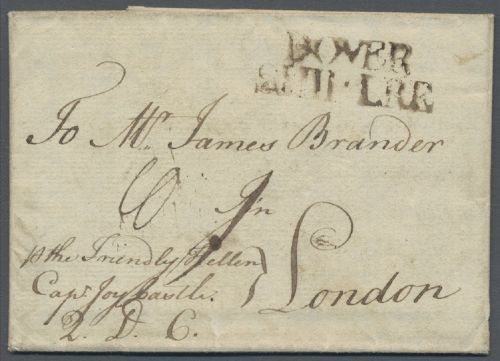 DOVER
SHIP·LRE
To Mr. James Brander
In
London
p the Friendly Hellen
Capt. Joy Castle.
2. D. C.